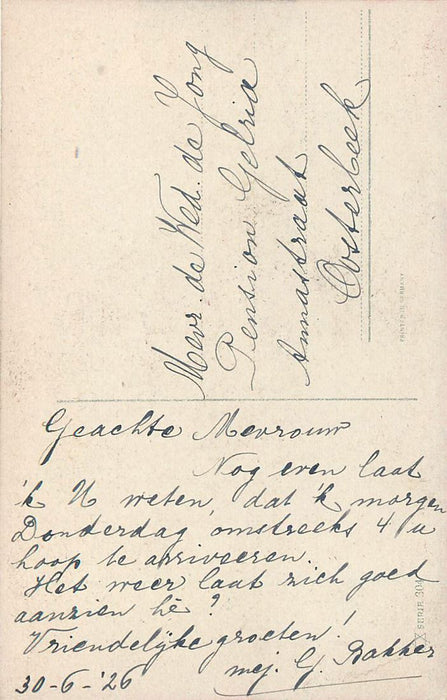 Mevr. de Wed. de Jong
Pension Gelria
Annastraat
Oosterbeek
PRINTED IN GERMANY
Geachte Mevrouw
Nog even laat
'k U weten, dat 'k morgen
Donderdag omstreeks 4 u
hoop te arriveeren.
Het weer laat zich goed
aanzien hè?
Vriendelijke groeten!
mej. G. Bakker
30-6-'26
SERIE